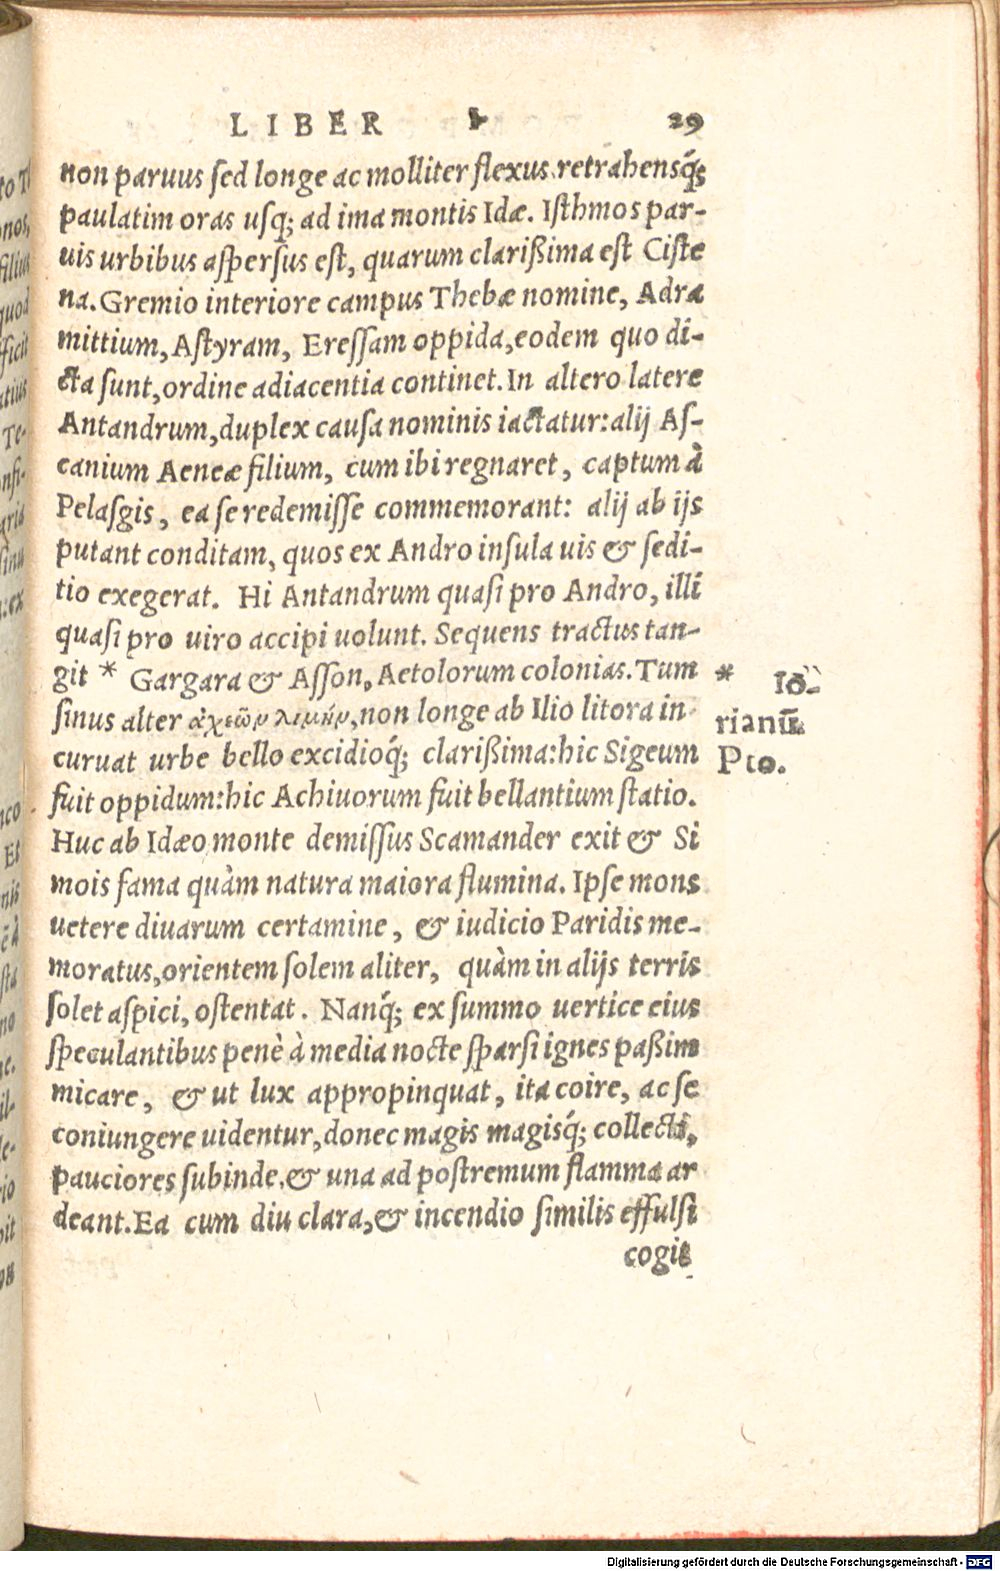 LIBER I 29
non paruus sed longe ac molliter flexus. retrahensq́;
paulatim oras usq; ad ima montis Idæ. Isthmos par-
uis urbibus aspersus est, quarum clarißima est Ciste
na. Gremio interiore campus Thebæ nomine, Adra
mittium, Astyram, Eressam oppida, eodem quo di-
cta sunt, ordine adiacentia continet. In altero latere
Antandrum, duplex causa nominis iactatur: alij As-
canium Aeneæ filium, cum ibi regnaret, captum à
Pelasgis, ea se redemisse commemorant: alij ab ijs
putant conditam, quos ex Andro insula uis & sedi-
tio exegerat. Hi Antandrum quasi pro Andro, illi
quasi pro uiro accipi uolunt. Sequens tractus tan-
git * Gargara & Asson, Aetolorum colonias. Tum
sinus alter ἀχειῶν λιμὴν, non longe ab Ilio litora in
curuat urbe bello excidioq́; clarißima: hic Sigeum
fuit oppidum: hic Achiuorum fuit bellantium statio.
Huc ab Idæo monte demissus Scamander exit & Si
mois fama quàm natura maiora flumina. Ipse mons
uetere diuarum certamine, & iudicio Paridis me-
moratus, orientem solem aliter, quàm in alijs terris
solet aspici, ostentat. Nanq́; ex summo uertice eius
speculantibus penè à media nocte sparsi ignes paßim
micare, & ut lux appropinquat, ita coire, ac se
coniungere uidentur, donec magis magisq́; collecti,
pauciores subinde, & una ad postremum flamma ar
deant. Ea cum diu clara, & incendio similis effulsi
cogit
* Io-
rianū
Pto.
Digitalisierung gefördert durch die Deutsche Forschungsgemeinschaft - DFG